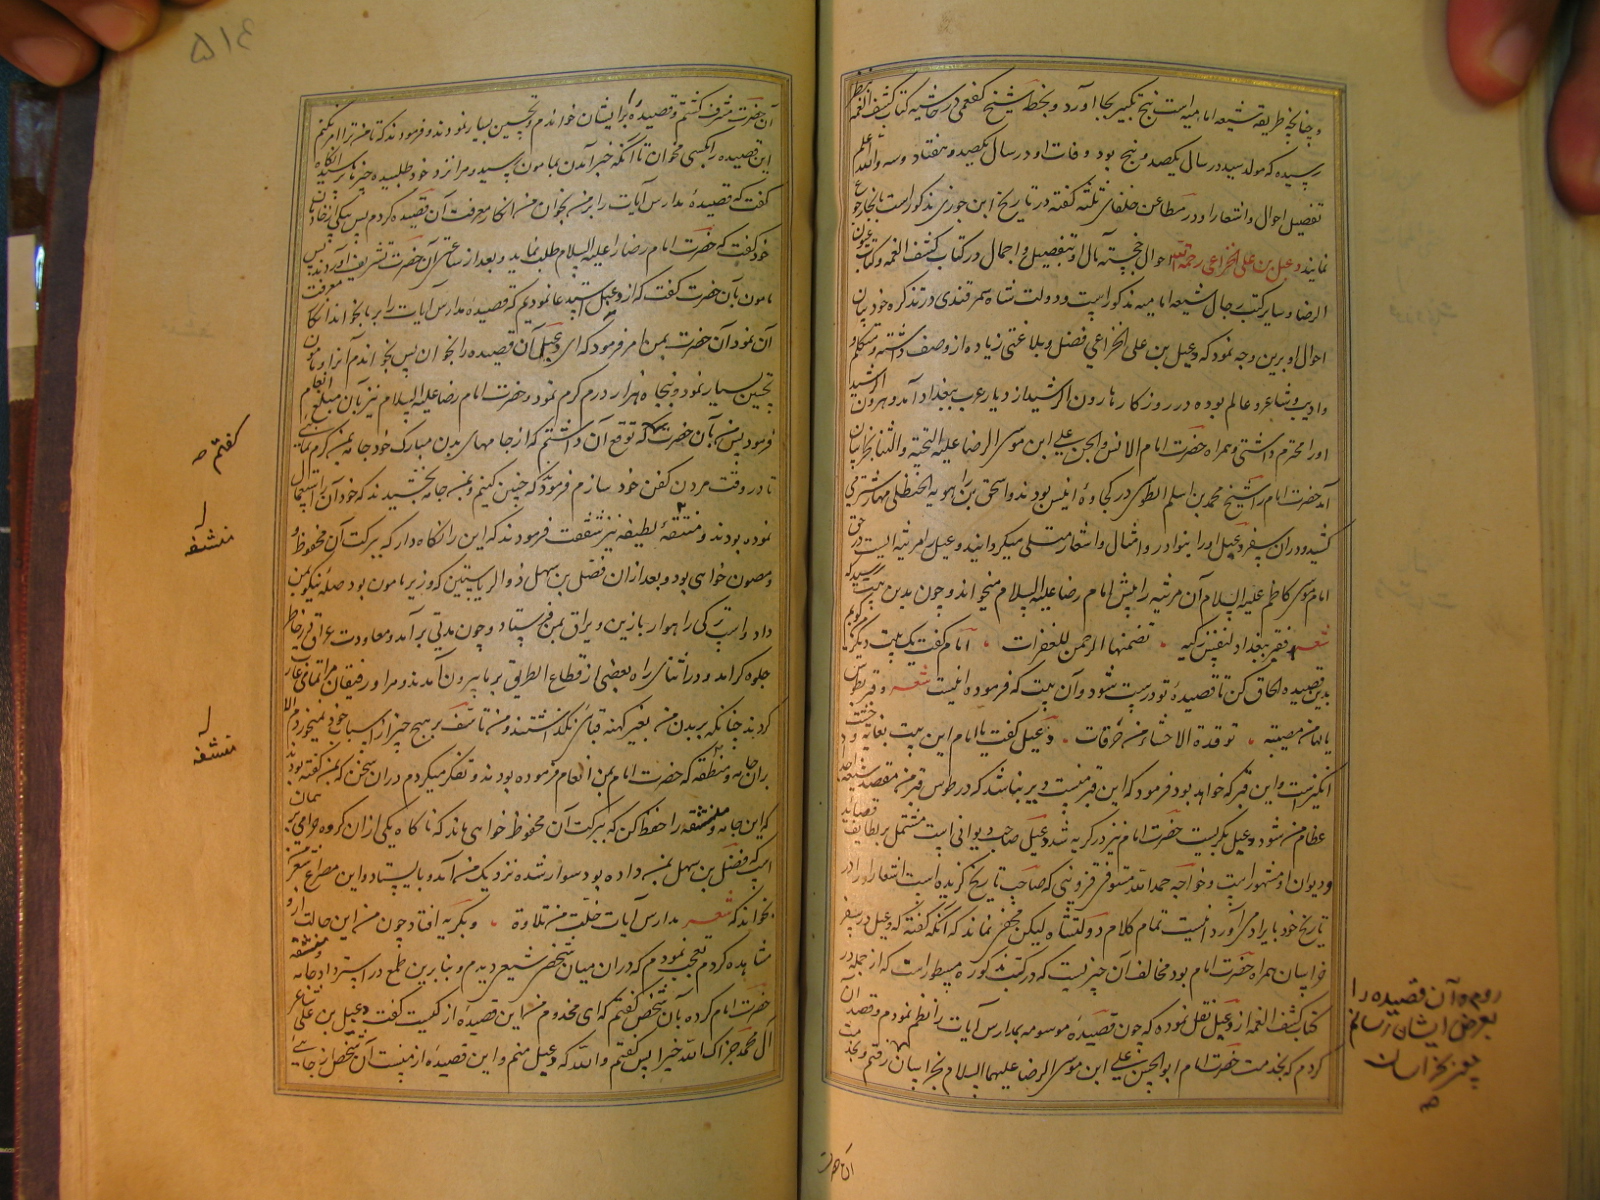 و چنانچه طریقه شیعه امامیه است پنج تکبیر بجا آورد و بخط شیخ کفعمی در حاشیه کتاب کشف الغمه بنظر
رسیده که مولد سید در سال یکصد و پنج بود و وفات او در سال یکصد و هفتاد و سه والله اعلم
تفصیل احوال و اشعار او در مطاعن خلفای ثلثه کفته در تاریخ ابن جوزی مذکور است بانجا رجوع
نمایند دعبل بن علی الخزاعی رحمه الله احوال خجسته مآل او بتفصیل و اجمال در کتاب کشف الغمه و کتاب عیون
الرضا و سایر کتب رجال شیعه امامیه مذکور است و دولت شاه سمرقندی در تذکره خود بیان
احوال او برین وجه نمود که دعبل بن علی الخزاعی فضل و بلاغتی زیاده از وصف داشته و متکلم
و ادیب و شاعر و عالم بوده در روزکار هارون الرشید از دیار عرب ببغداد آمد و هرون الرشید
اورا محترم داشتی و همراه حضرت امام الانس و الجن علی ابن موسی الرضا علیه التحیه و الثنا بخراسان
آمد حضرت امام را شیخ محمد بن اسلم الطوسی در کجاوه انیس بودند و اسحق بن راهویه الحنظلی مهار شتر می
کشید و در ان سفر دعبل اورا بنوادر و امثال و اشعار متسلی میکردانید و دعبل را مرثیه ایست در حق
امام موسی کاظم علیه السلام آن مرثیه را پیش امام رضا علیه السلام میخواند و چون بدین بیت رسید که
شعر و قبر ببغداد لنفس زکیه • تضمنها الرحمن للغرفات • امام کفت یک بیت دیکر من بکویم
بدین قصیده الحاق کن تا قصیدهٔ تو درست شود و آن بیت که فرموده اینست شعر و قبر بطوس
یا لها من مصیبته • توقدة الاحشاء من حرقات • دعبل کفت یا امام این بیت بغایت وحشت
انکیز است و این قبر که خواهد بود فرمود که این قبر منست و دیر نباشد که در طوس قبر من مقصد شیعه اجداد
عظام من شود دعبل بکریست حضرت امام نیز در کریه شد و دعبل صاحب دیوانی است مشتمل بر لطایف قصاید
و دیوان او مشهور است و خواجه حمد الله مستوفی قزوینی که صاحب تاریخ کزیده است اشعار اورا در
تاریخ خود بایراد می آورد اینست تمام کلام دولتشاه لیکن مخفی نماند که آنکه کفته که دعبل در سفر
خراسان همراه حضرت امام بود مخالف آن چیزیست که در کتب مذکوره مسطور است که از جمله در
کتاب کشف الغمه از دعبل نقل نموده که چون قصیدهٔ موسومه بمدارس آیات را نظم نمودم و قصد آن
کردم که بخدمت حضرت امام ابو الحسن علی ابن موسی الرضا علیهما السلام بخراسان رفتم و بخدمت
روم و آن قصیده را
بعرض ایشان رسانم
پس بخراسان
صح
آن حضرت
۵۱۶
آن حضرت مشرف کشتم و قصیده را بر ایشان خواندم و تحسین بسیار نمودند و فرمودند که تا من ترا امر نکنم
این قصیده را بکسی مخوان تا آنکه خبر آمدن بمامون رسید و مرا نزد خود طلبیده خبرها پرسید آنکاه
کفت که قصیدهٔ مدارس آیات را بر من بخوان من انکار معرفت آن قصیده کردم پس بیکی از غلامان
خود کفت که حضرت امام رضا را علیه السلام طلب نماید و بعد از ساعتی آن حضرت تشریف آوردند پس
مامون بآن حضرت کفت که از دعبل استدعا نمودیم که قصیدهٔ مدارس آیات را بر ما بخواند انکار معرفت
آن نمود آن حضرت بمن امر فرمود که ای دعبل آن قصیده را بخوان پس بخواندم آنرا و مامون
تحسین بسیار نمود و پنجاه هزار درم کرم نمود و حضرت امام رضا علیه السلام نیز بآن مبلغ انعام
فرمود پس من بآن حضرت که توقع آن داشتم که از جامهای بدن مبارک خود جامه بمن کرم نمایی
تا در وقت مردن کفن خود سازم فرمودند که چنین کنیم و بمن جامه بخشیدند که خود آن را استعمال
نموده بودند و منشفهٔ لطیفه نیز شفقت فرمودند که این را نکاه دار که ببرکت آن محفوظ و
و مصون خواهی بود و بعد از ان فضل بن سهل ذو الریاستین که وزیر مامون بود صله نیکو بمن
داد و اسپ ترکی راهوار با زین و یراق بمن فرستاد و چون مدتی برآمد و معاودت عراق در خاطر
جلوه کر آمد و در اثنای راه بعضی از قطاع الطریق بر ما بیرون آمدند و مرا و رفیقان مرا تمامی غارت
کردند چنانکه بر بدن من بغیر کهنه قبائی نکذاشتند و من تاسف بر هیچ چیز از اسباب خود نمیخوردم الا
بران جامه و منشفه که حضرت امام بمن انعام فرموده بودند و تفکر میکردم دران سخن که بمن کفته بودند
که این جامه و منشفه را حفظ کن که ببرکت آن محفوظ خواهی ماند که ناکاه یکی از ان کروه حرامی بر همان
اسپ که فضل بن سهل بمن داده بود سوار شده نزدیک من آمد و بایستاد و این مصراع شعر مرا
بخواند که شعر مدارس آیات خلت من تلاوة • و بکریه افتاد چون من این حالت از و
مشاهده کردم تعجب نمودم که دران میان شخص شیعی دیدم و بنابرین طمع در استرداد جامه و منشفه
حضرت امام کرده بآن شخص کفتم که ای مخدوم من این قصیدهٔ از کیست کفت دعبل بن علی شاعر
آل محمد جزاک الله خیرا پس کفتم والله که دعبل منم و این قصیدهٔ از منست آن شخص از جای
کفتم صح
منشفه
منشفه